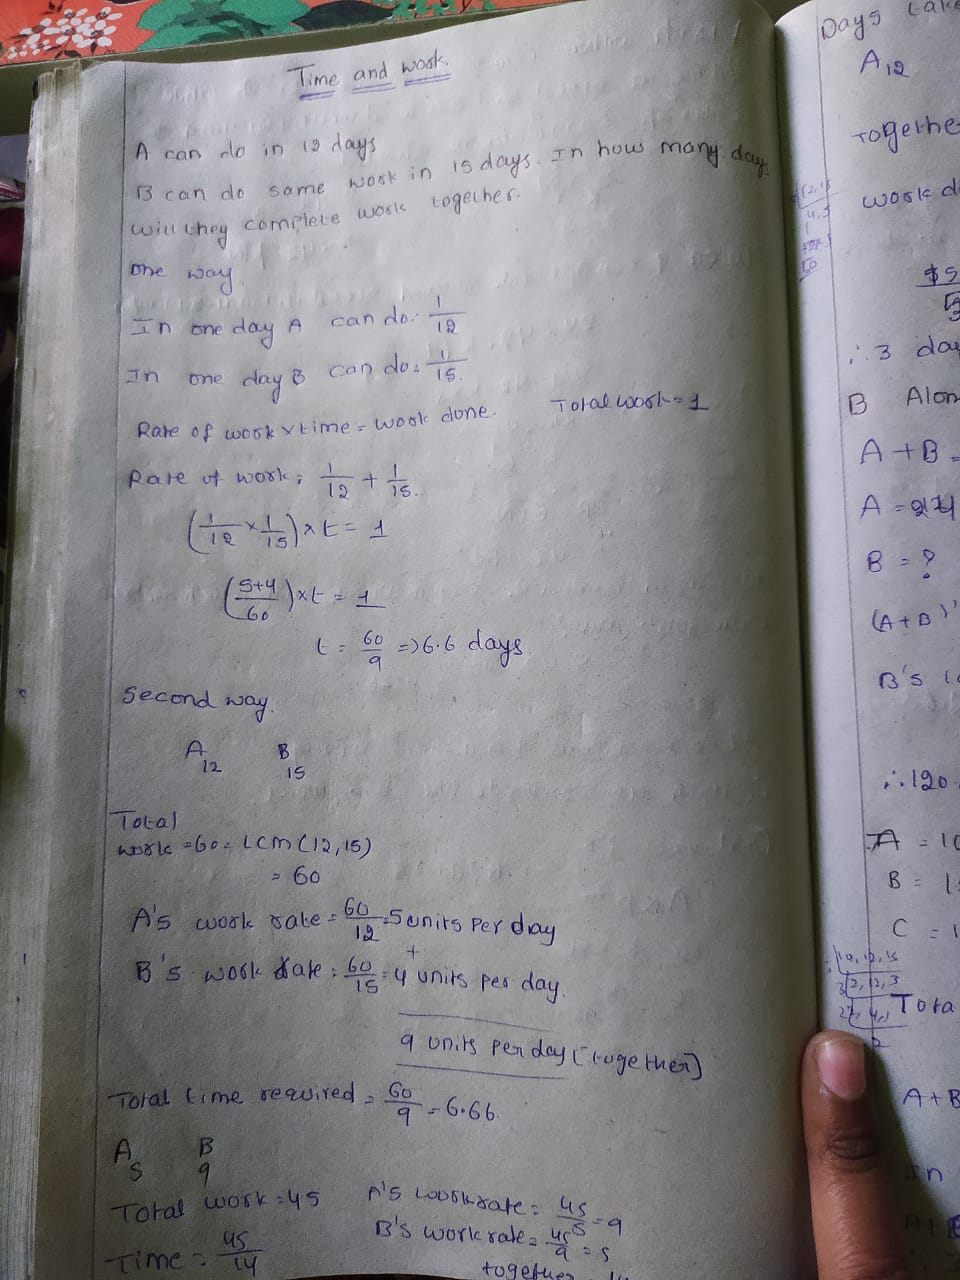 Time and work
A can do in 12 days
B can do same work in 15 days. In how many days
will they complete work together.
One way
In one day A can do: 1/12
In one day B can do: 1/15.
Rate of work x time = work done. Total work = 1
Rate of work; 1/12 + 1/15.
(1/12 x 1/15) x t = 1
((5+4)/60) x t = 1
t = 60/9 => 6.6 days.
Second way.
A 12 B 15
Total
work = 60 = LCM (12, 15)
= 60
A's work rate = 60/12 = 5 units per day
+
B's work rate = 60/15 = 4 units per day.
9 units per day (together)
Total time required = 60/9 = 6.66.
A 5 B 9
Total work = 45 A's work rate = 45/5 = 9
B's work rate = 45/9 = 5
Time = 45/14
together
Days take
A 12
togethe
work d
∴ 3 day
B Alon
A + B =
A =
B = ?
(A + B)'
B's
∴ 120
A = 10
B = 1
C = 1
10, 12, 15
2, 12, 3
Tota
A + B
In